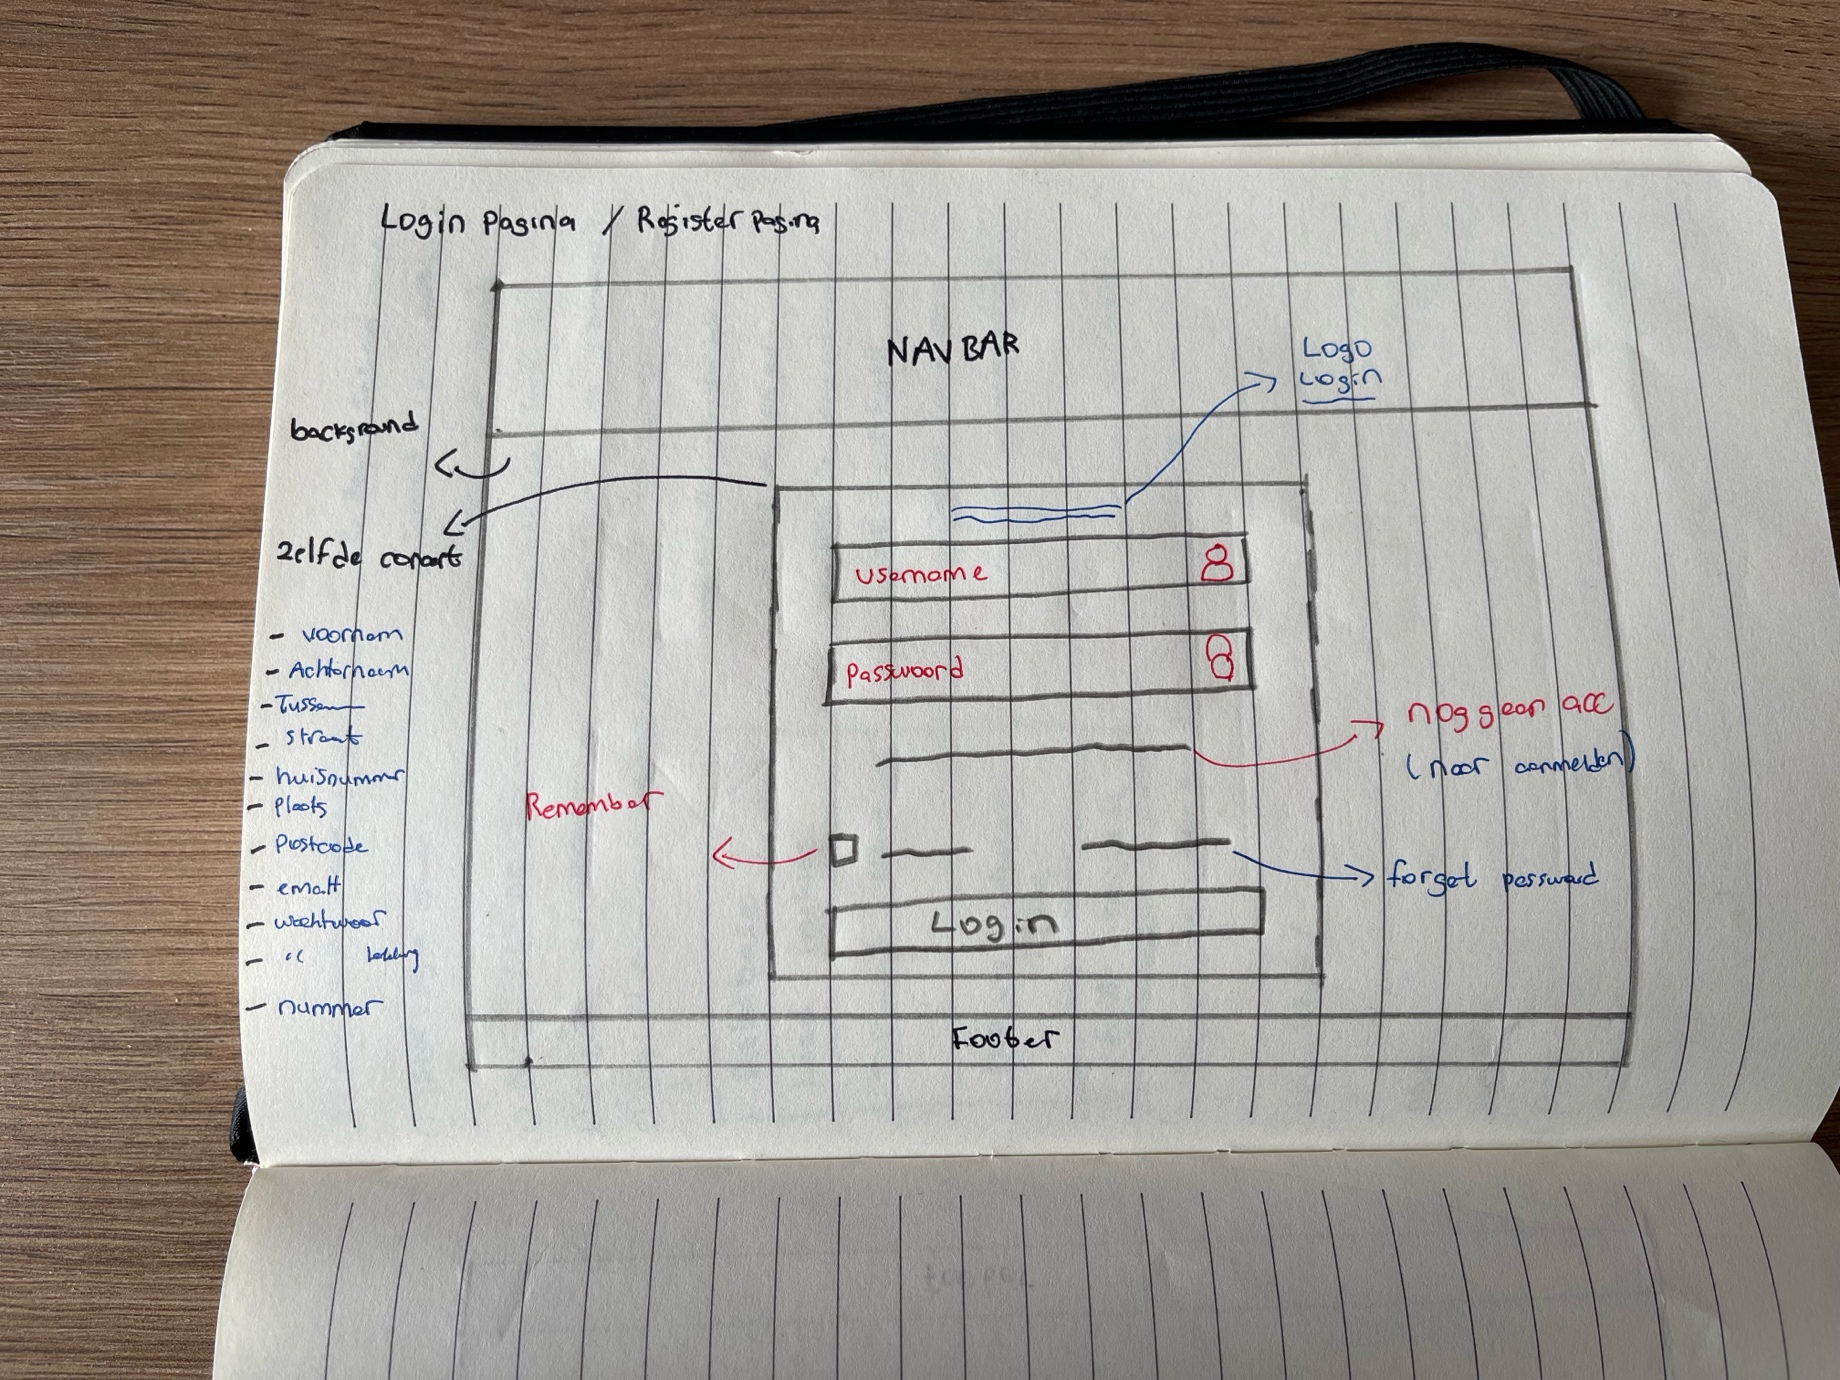 Login Pagina / Register Pagina
NAVBAR
Logo
Login
background
zelfde concept
username
passwoord
- voornam
- Achternaam
- Tussen
- straat
- huisnummr
- plaats
- Postcode
- email
- wachtwoor
- "
- nummer
nog geen acc
(naar aanmelden)
Remember
forget password
Login
Footer